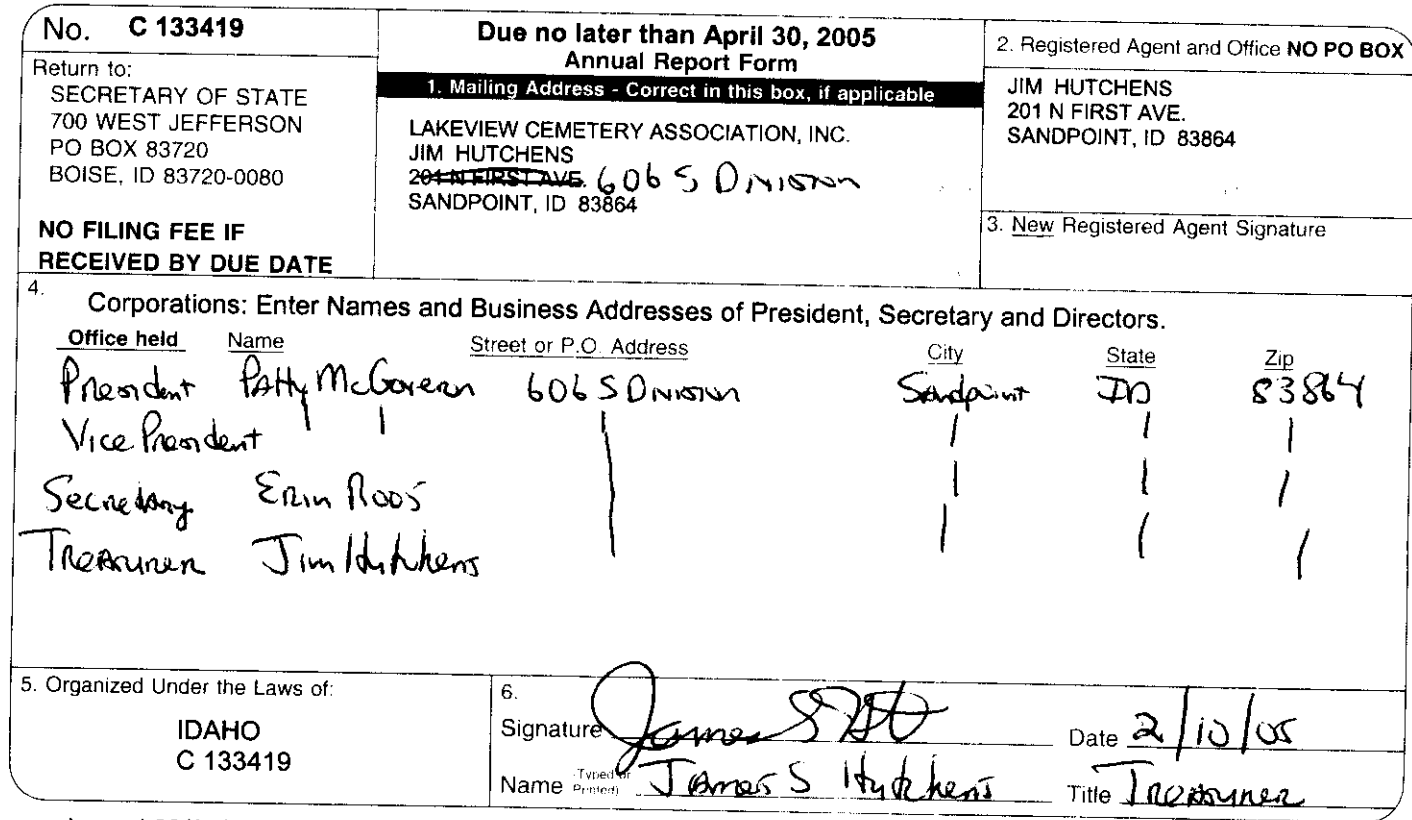 No. C 133419
Return to:
SECRETARY OF STATE
700 WEST JEFFERSON
PO BOX 83720
BOISE, ID 83720-0080
NO FILING FEE IF
RECEIVED BY DUE DATE
Due no later than April 30, 2005
Annual Report Form
1. Mailing Address - Correct in this box, if applicable
LAKEVIEW CEMETERY ASSOCIATION, INC.
JIM HUTCHENS
201 N FIRST AVE. 606 S Division
SANDPOINT, ID 83864
2. Registered Agent and Office NO PO BOX
JIM HUTCHENS
201 N FIRST AVE.
SANDPOINT, ID 83864
3. New Registered Agent Signature
4.
Corporations: Enter Names and Business Addresses of President, Secretary and Directors.
Office held Name Street or P.O. Address City State Zip
President Patty McGovern 606 S Division Sandpoint ID 83864
Vice President
Secretary Erin Roos
Treasurer Jim Hutchens
5. Organized Under the Laws of:
IDAHO
C 133419
6.
Signature James S Date 2/10/05
Name (Typed or Printed) James S Hutchens Title Treasurer